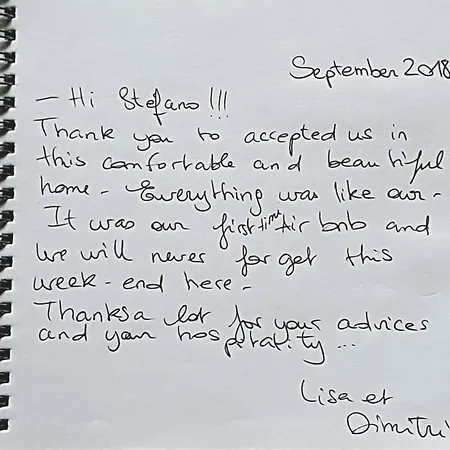 September 2018
- Hi Stefano !!!
Thank you to accepted us in
this comfortable and beautiful
home - Everything was like our -
It was our first time Air bnb and
we will never forget this
week-end here -
Thanks a lot for your advices
and your hospitality ...
Lisa et
Dimitri